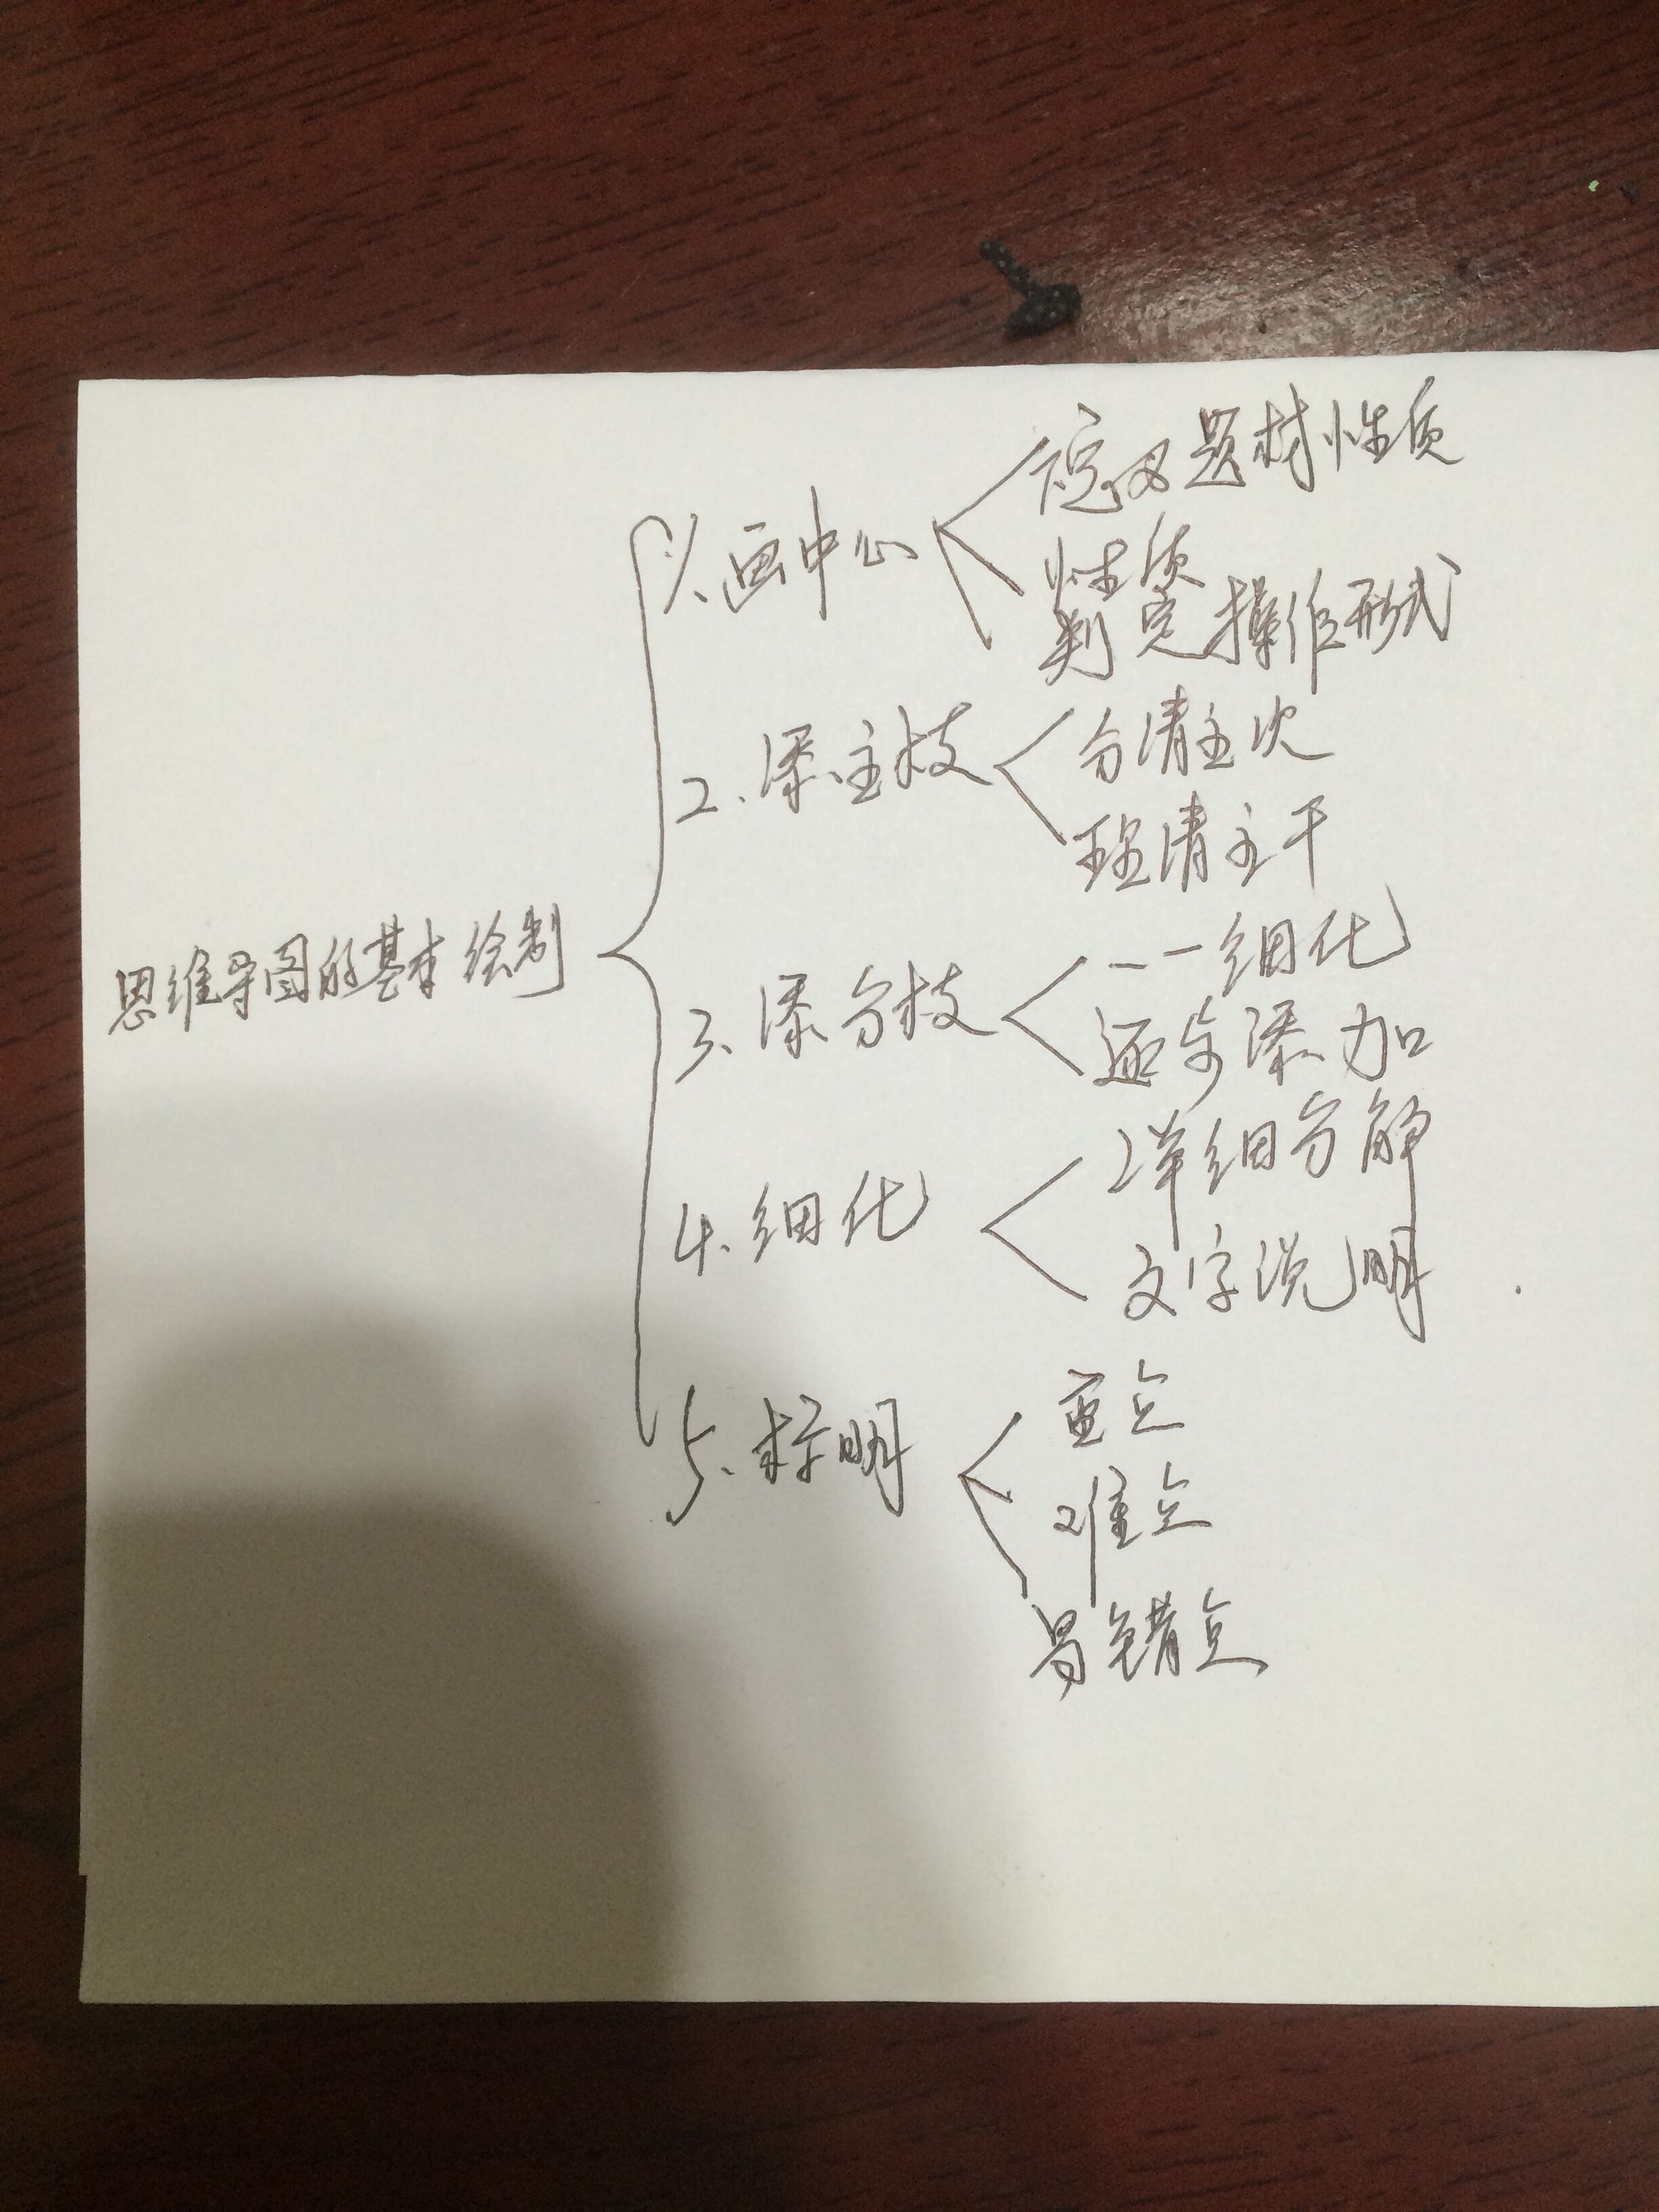 思维导图的基本绘制
1、画中心
题材性质
性质
判定操作形式
2、添主枝
分清主次
理清主干
3、添分枝
一一细化
逐步添加
4、细化
详细分解
文字说明
5、标明
重点
难点
易错点